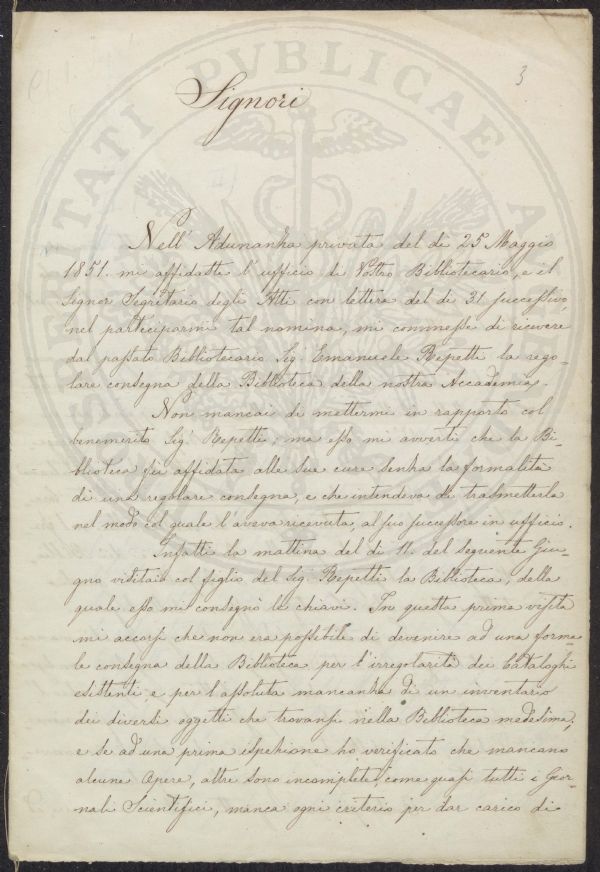 3
Signori
Nell' Adunanza privata del dì 25 Maggio
1851. mi affidaste l'uffizio di Vostro Bibliotecario, e il
Signor Segretario degli Atti con lettera del dì 31 successivo,
nel parteciparmi tal nomina, mi commesse di ricevere
dal passato Bibliotecario Sig.r Emanuele Repetti la rego-
lare consegna della Biblioteca della nostra Accademia.
Non mancai di mettermi in rapporto col
benemerito Sig.r Repetti; ma esso mi avvertì che la Bi-
blioteca fù affidata alle sue cure senza la formalità
di una regolare consegna, e che intendeva di trasmetterla
nel modo col quale l'aveva ricevuta, al suo successore in uffizio.
Infatti la mattina del dì 11. del seguente Giu-
gno visitai col figlio del Sig.r Repetti la Biblioteca, della
quale esso mi consegnò le chiavi. In questa prima visita
mi accorsi che non era possibile di devenire ad una forma-
le consegna della Biblioteca per l'irregolarità dei Cataloghi
esistenti e per l'assoluta mancanza di un inventario
dei diversi oggetti che trovansi nella Biblioteca medesima,
e se ad una prima ispezione ho verificato che mancano
alcune Opere, altre sono incomplete come quasi tutti i Gior-
nali Scientifici, manca ogni criterio per dar carico di